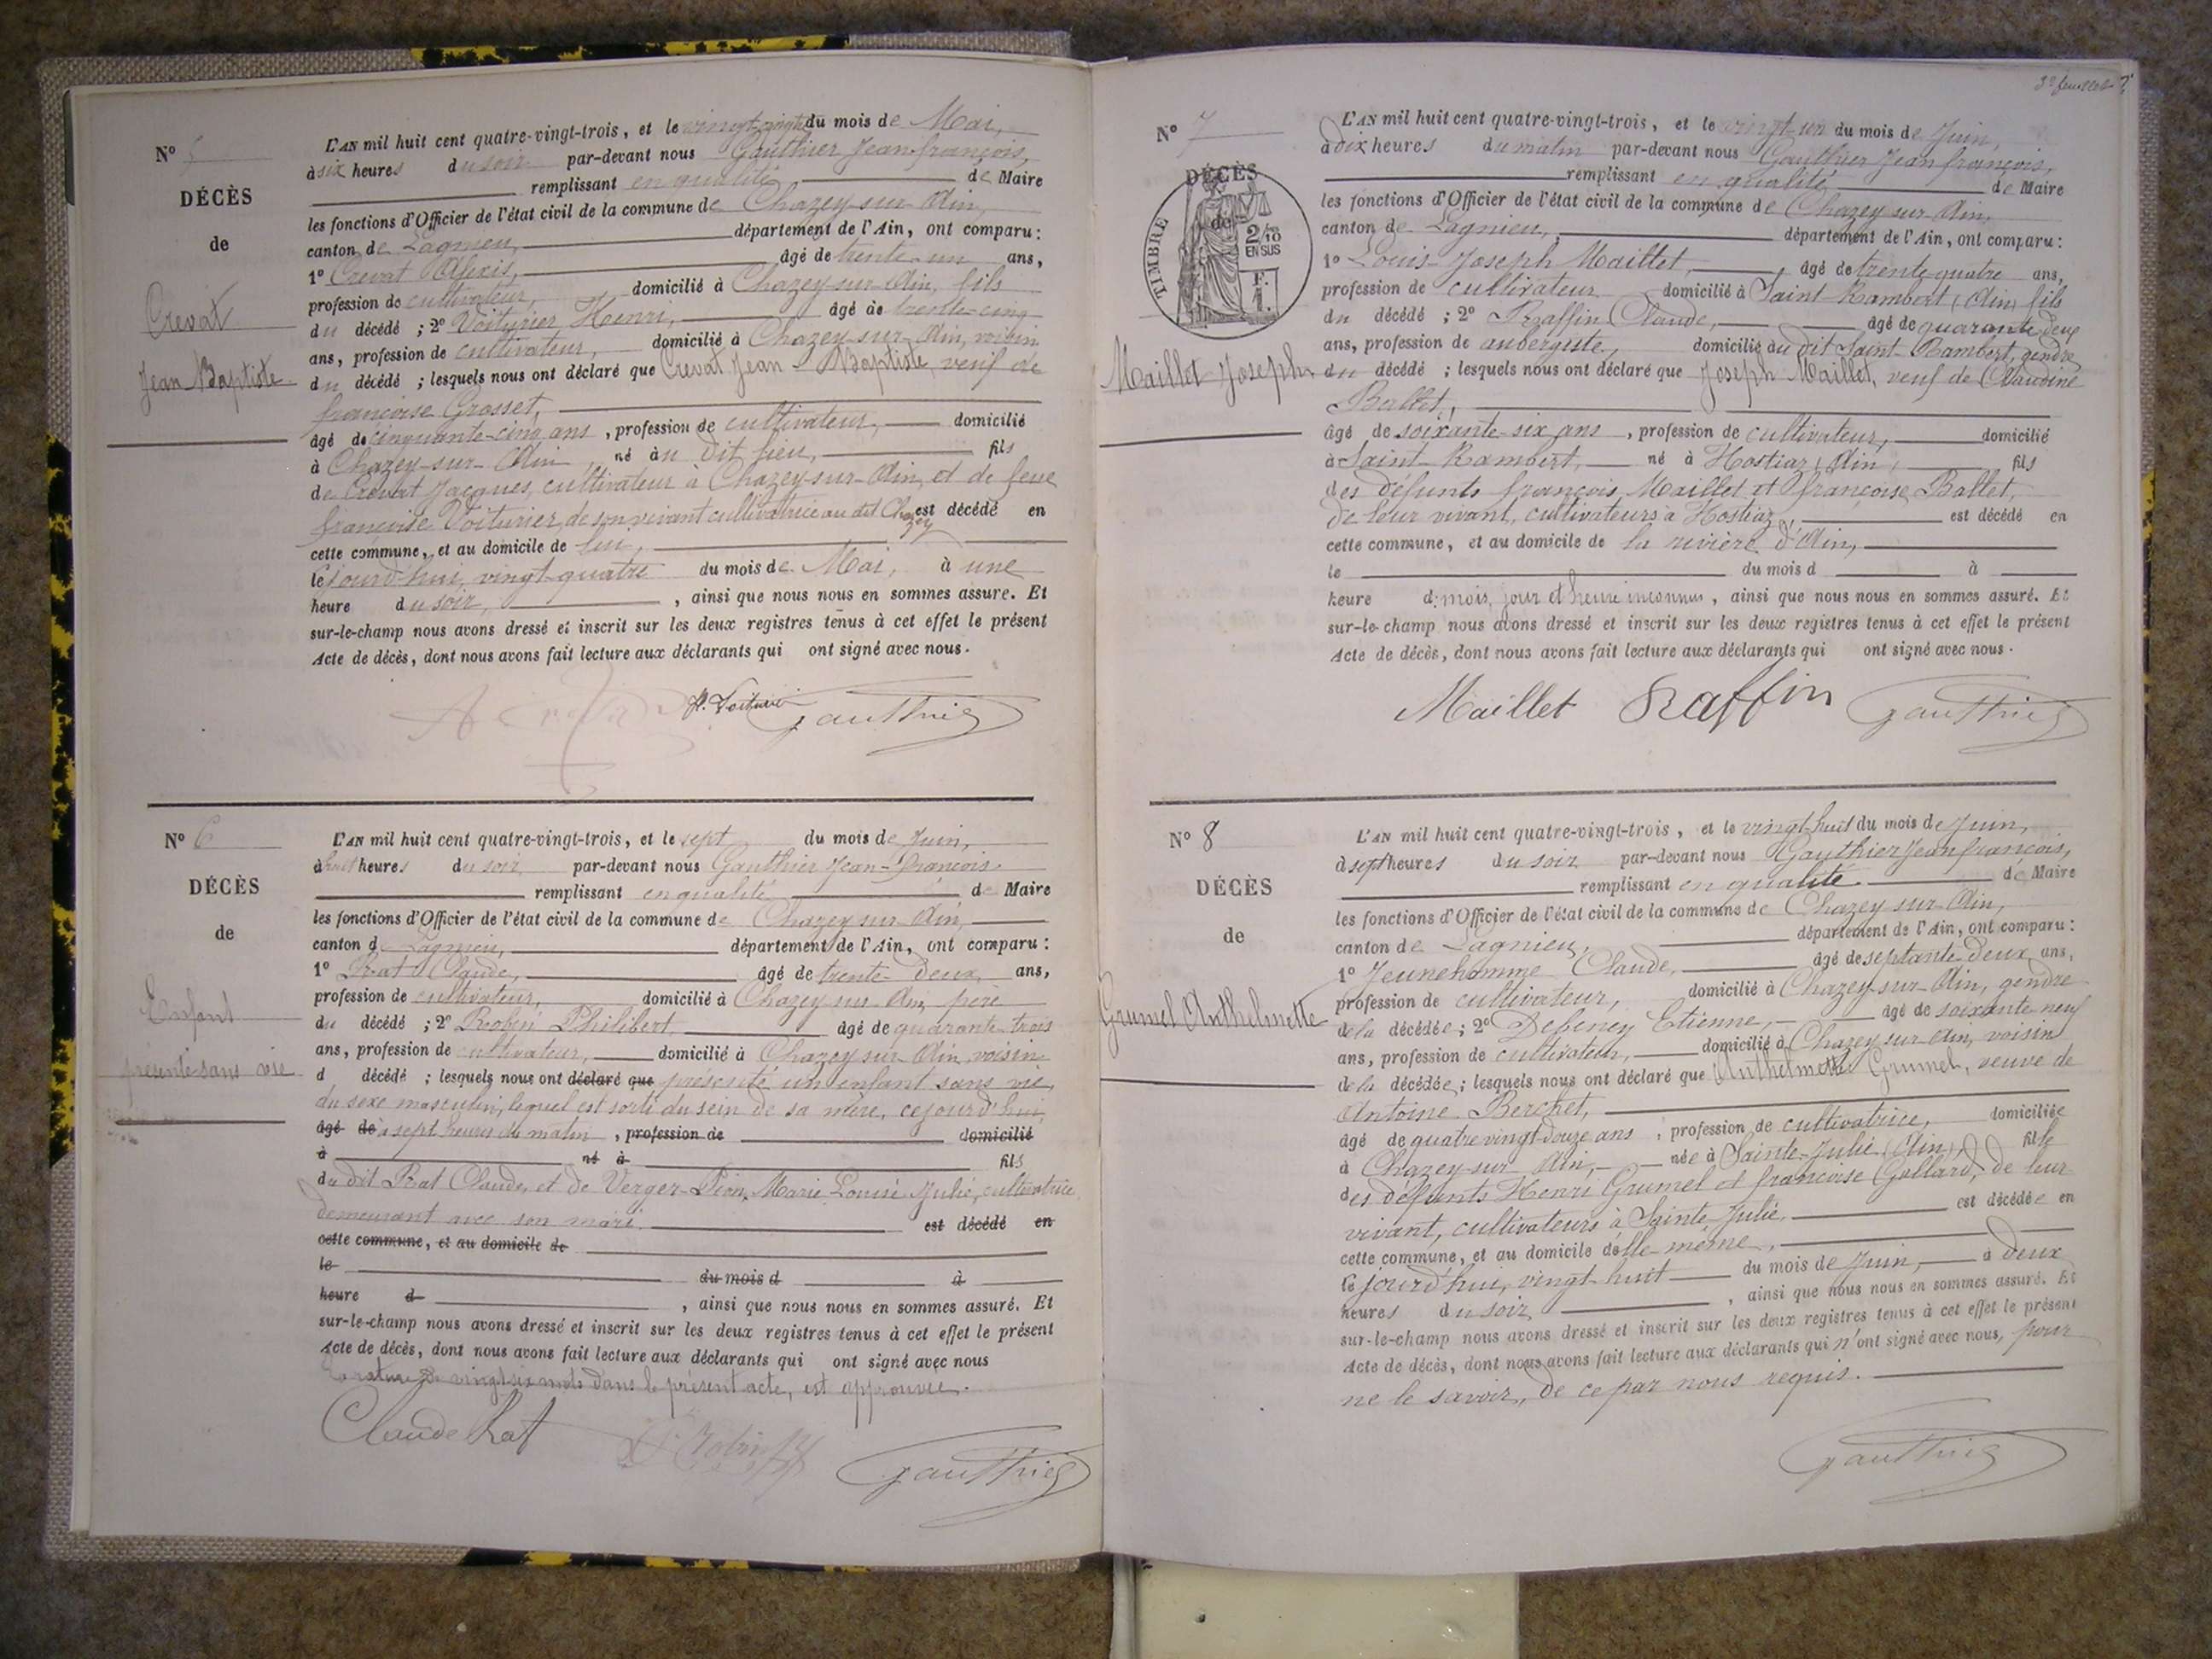 Nº 5
DÉCÈS
de
Crevat
Jean Baptiste
L'AN mil huit cent quatre-vingt-trois, et le vingt-quatre du mois de Mai,
à six heures du soir par-devant nous Gauthier Jean-françois,
remplissant en qualité de Maire
les fonctions d'Officier de l'état civil de la commune de Chazey-sur-Ain,
canton de Lagnieu, département de l'Ain, ont comparu :
1º Crevat Alexis, âgé de trente-un ans,
profession de cultivateur, domicilié à Chazey-sur-Ain, fils
du décédé ; 2º Voiturier Henri, âgé de trente-cinq
ans, profession de cultivateur, domicilié à Chazey-sur-Ain, voisin
du décédé ; lesquels nous ont déclaré que Crevat Jean-Baptiste, veuf de
françoise Grosset,
âgé de cinquante-cinq ans, profession de cultivateur, domicilié
à Chazey-sur-Ain, né au dit lieu, fils
de Crevat Jacques, cultivateur à Chazey-sur-Ain, et de feue
françoise Voiturier, de son vivant cultivatrice au dit Chazey est décédé en
cette commune, et au domicile de lui,
ce jourd'hui, vingt-quatre du mois de Mai, à une
heure du soir, ainsi que nous nous en sommes assuré. Et
sur-le-champ nous avons dressé et inscrit sur les deux registres tenus à cet effet le présent
Acte de décès, dont nous avons fait lecture aux déclarants qui ont signé avec nous.
H. Voiturier Gauthier
Nº 6
DÉCÈS
de
Enfant
présenté sans vie
L'AN mil huit cent quatre-vingt-trois, et le sept du mois de Juin,
à huit heures du soir par-devant nous Gauthier Jean-François
remplissant en qualité de Maire
les fonctions d'Officier de l'état civil de la commune de Chazey sur Ain,
canton de Lagnieu, département de l'Ain, ont comparu :
1º Rat Claude, âgé de trente-deux ans,
profession de cultivateur, domicilié à Chazey sur Ain, père
du décédé ; 2º Robin Philibert âgé de quarante-trois
ans, profession de cultivateur, domicilié à Chazey sur Ain, voisin
d décédé ; lesquels nous ont déclaré que présenté un enfant sans vie,
du sexe masculin, lequel est sorti du sein de sa mère, ce jourd'hui
âgé de à sept heures du matin, profession de domicilié
à né à fils
du dit Rat Claude, et de Verger-Pion, Marie Louise Julie, cultivatrice,
demeurant avec son mari. est décédé en
cette commune, et au domicile de
le du mois d à
heure d , ainsi que nous nous en sommes assuré. Et
sur-le-champ nous avons dressé et inscrit sur les deux registres tenus à cet effet le présent
Acte de décès, dont nous avons fait lecture aux déclarants qui ont signé avec nous
La rature de vingt-six mots dans le présent acte, est approuvée.
Claude Rat Robin Gauthier
3e feuillet
Nº 7
DÉCÈS
de
TIMBRE
2/10
EN SUS
F.
1.
Maillet Joseph
L'AN mil huit cent quatre-vingt-trois, et le vingt-un du mois de Juin,
à dix heures du matin par-devant nous Gauthier Jean françois,
remplissant en qualité de Maire
les fonctions d'Officier de l'état civil de la commune de Chazey sur Ain,
canton de Lagnieu, département de l'Ain, ont comparu :
1º Louis-Joseph Maillet, âgé de trente-quatre ans,
profession de cultivateur domicilié à Saint-Rambert (Ain) fils
du décédé ; 2º Raffin Claude, âgé de quarante deux
ans, profession de aubergiste, domicilié au dit Saint-Rambert, gendre
du décédé ; lesquels nous ont déclaré que Joseph Maillet, veuf de Claudine
Ballet,
âgé de soixante-six ans, profession de cultivateur, domicilié
à Saint-Rambert, né à Hostiaz (Ain), fils
des défunts françois Maillet et françoise Ballet,
de leur vivant, cultivateurs à Hostiaz, est décédé en
cette commune, et au domicile de la rivière d'Ain,
le du mois d à
heure d: mois, jour et heure inconnus, ainsi que nous nous en sommes assuré. Et
sur-le-champ nous avons dressé et inscrit sur les deux registres tenus à cet effet le présent
Acte de décès, dont nous avons fait lecture aux déclarants qui ont signé avec nous.
Maillet Raffin Gauthier
Nº 8
DÉCÈS
de
Grumel Anthelmette
L'AN mil huit cent quatre-vingt-trois, et le vingt-huit du mois de Juin,
à sept heures du soir par-devant nous Gauthier Jean françois,
remplissant en qualité de Maire
les fonctions d'Officier de l'état civil de la commune de Chazey sur Ain,
canton de Lagnieu, département de l'Ain, ont comparu :
1º Jeunehomme Claude, âgé de septante-deux ans,
profession de cultivateur, domicilié à Chazey-sur-Ain, gendre
de la décédée ; 2º Debeney Etienne, âgé de soixante neuf
ans, profession de cultivateur, domicilié à Chazey sur Ain, voisin
de la décédée ; lesquels nous ont déclaré que Anthelmette Grumel, veuve de
Antoine Berchet,
âgé de quatre vingt-douze ans, profession de cultivatrice, domiciliée
à Chazey-sur-Ain, née à Sainte-Julie (Ain), fille
des défunts Henri Grumel et françoise Gollard, de leur
vivant, cultivateurs à Sainte-Julie. est décédée en
cette commune, et au domicile d'elle-même,
ce jourd'hui, vingt-huit du mois de Juin, à deux
heures du soir, ainsi que nous nous en sommes assuré. Et
sur-le-champ nous avons dressé et inscrit sur les deux registres tenus à cet effet le présent
Acte de décès, dont nous avons fait lecture aux déclarants qui n'ont signé avec nous, pour
ne le savoir, de ce par nous requis.
Gauthier